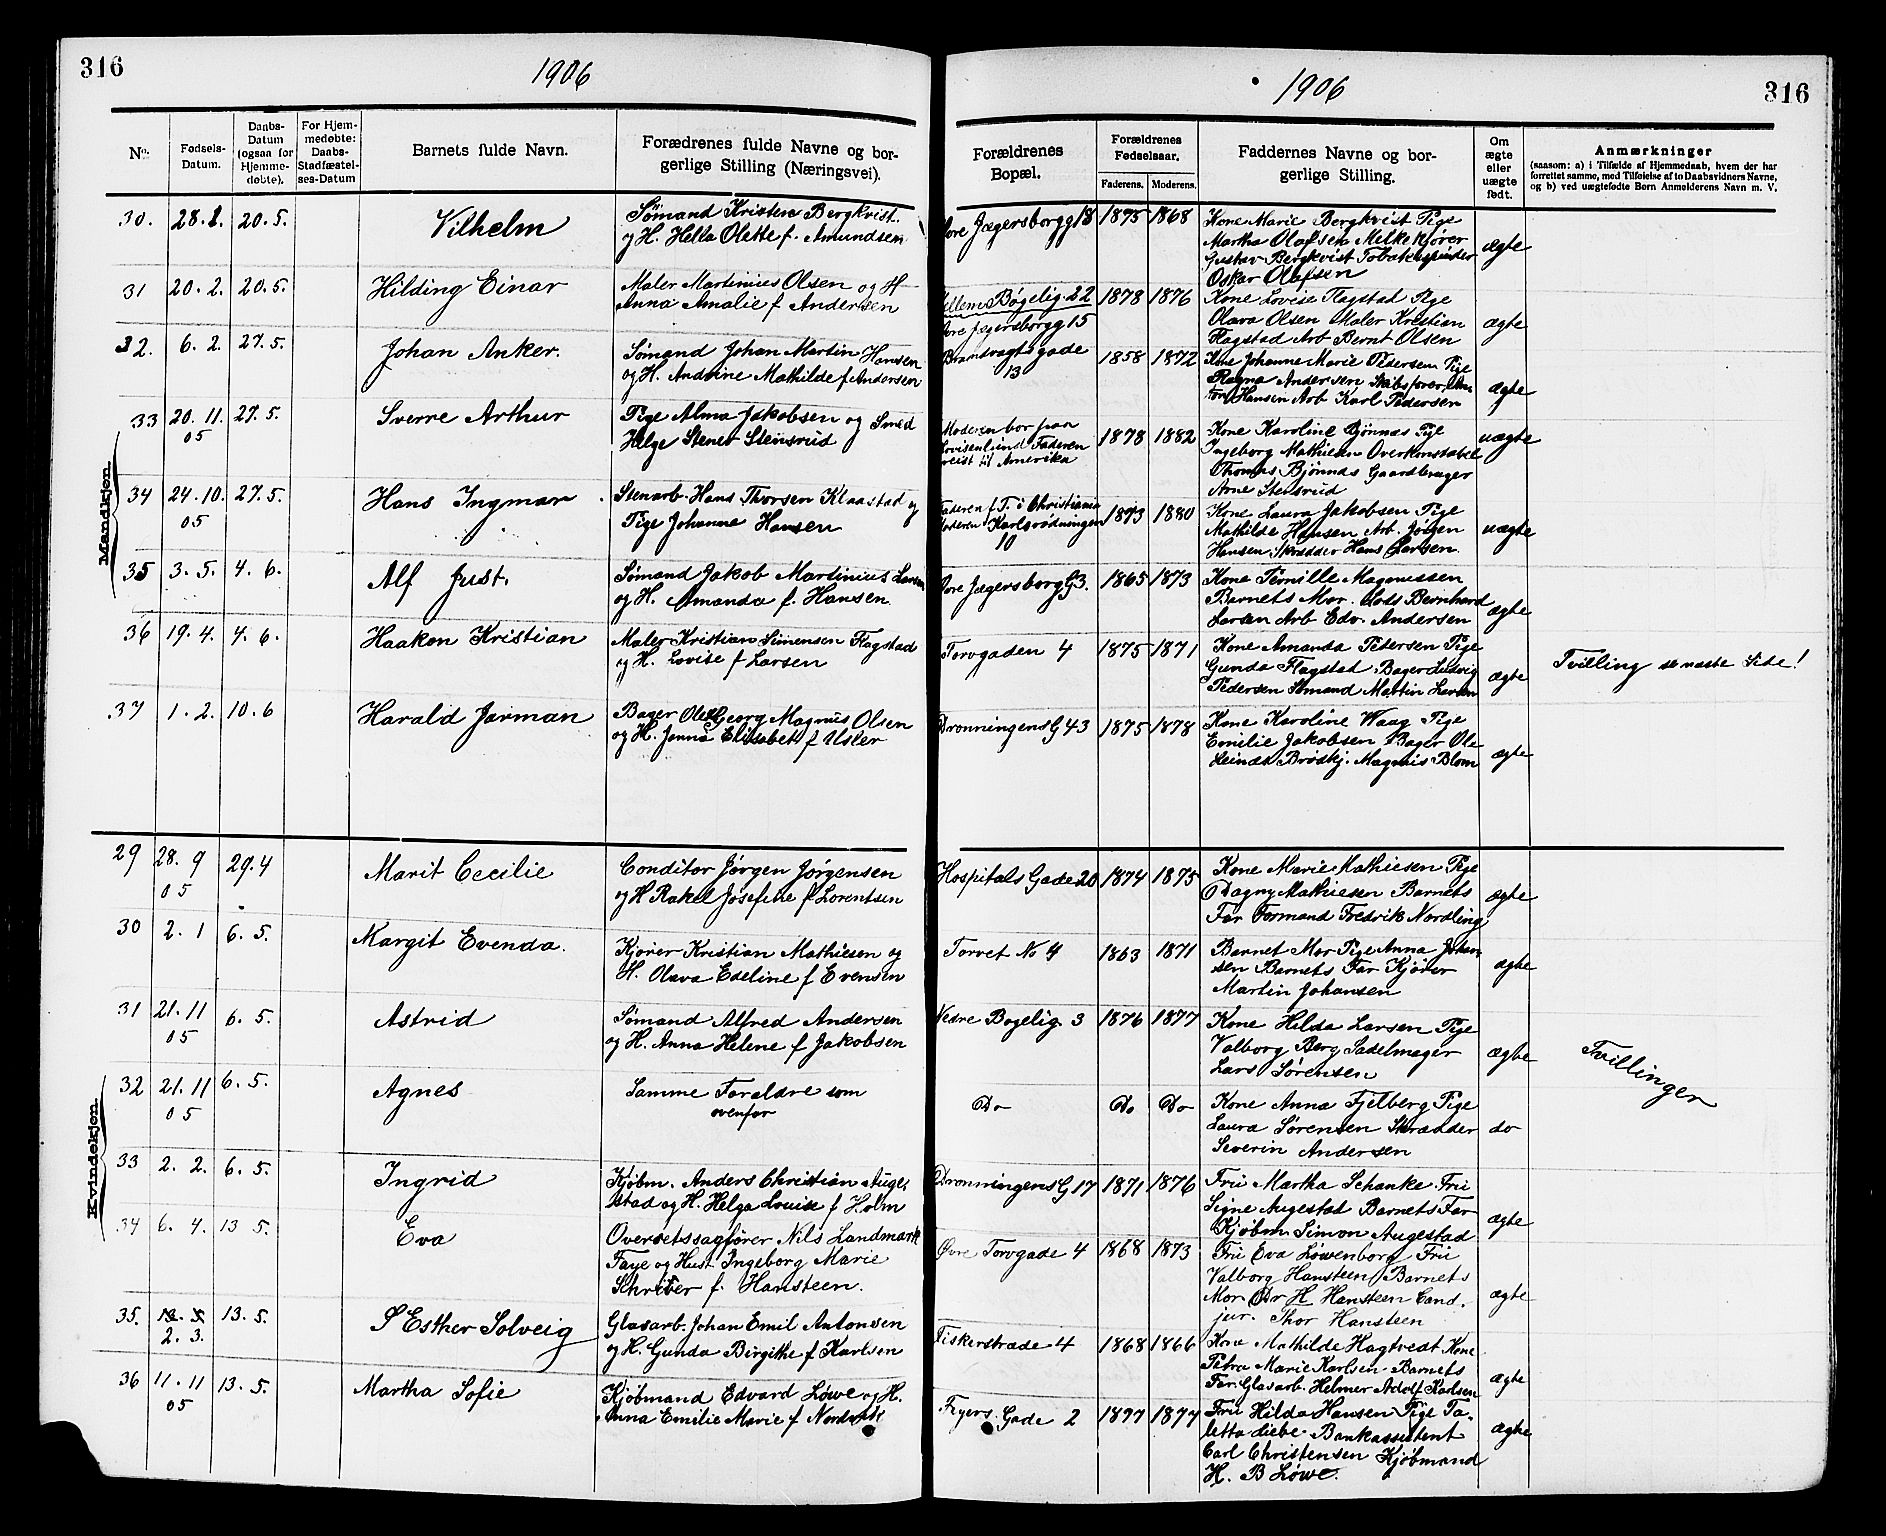 316
1906
No.
Fødsels-
Datum.
Daabs-
Datum
(ogsaa for
Hjemme-
døbte).
For Hjem-
medøbte:
Daabs-
Stadfæstel-
ses-Datum
Barnets fulde Navn.
Forædrenes fulde Navne og bor-
gerlige Stilling (Næringsvei).
Mandkjøn
30. 28.1. 20.5. Vilhelm Sømand Kristen Bergkvist.
og H. Hella Olette f. Amundsen
31 20.2. 20.5. Hilding Einar Maler Martinius Olsen og H
Anna Amalie f Andersen
32. 6.2. 27.5. Johan Anker. Sømand Johan Martin Hansen
og H. Andrine Mathilde f Andersen
33 20.11. 27.5. Sverre Arthur Pige Alma Jakobsen og Smed
05 Helge Stener Stensrud
34 24.10. 27.5. Hans Ingmar Stenarb. Hans Thorsen Klaastad og
05 Pige Johanne Hansen
35 3.5. 4.6. Alf Just. Sømand Jakob Martinius Larsen
og H. Amanda f. Hansen
36 19.4. 4.6. Haakon Kristian Maler Kristian Simensen Flagstad
og H. Lovise f Larsen
37 1.2. 10.6 Harald Jarman Bager Ole Georg Magnus Olsen
og H. Janna Elisabet f Usler
Kvindekjøn
29 28.9 29.4 Marit Cecilie Conditor Jørgen Jørgensen
05 og H Rakel Josefine f Lorentsen
30 2.1 6.5. Margit Evenda. Kjører Kristian Mathiesen og
H. Olava Edeline f Evensen
31 21.11 6.5. Astrid Sømand Alfred Andersen
05 og H. Anna Helene f Jakobsen
32 21.11 6.5. Agnes Samme Forældre som
05 ovenfor
33 2.2. 6.5. Ingrid Kjøbm. Anders Christian Auge-
stad og H. Helga Louise f Holm
34 6.4. 13 5. Eva Overretssagfører Nils Landmark
Faye og Hust. Ingeborg Marie
Schriver f. Hansteen.
35. 13.5. Esther Solveig Glasarb. Johan Emil Antonsen
2.3. og H. Gunda Birgithe f Karlsen
36 11.11 13.5. Martha Sofie Kjøbmand Edvard Løwe og H.
05 Anna Emilie Marie f
1906
316
Forældrenes
Bopæl.
Forældrenes
Fødselsaar.
Faderens. Moderens.
Faddernes Navne og bor-
gerlige Stilling.
Om
ægte
eller
uægte
født.
Anmærkninger
(saasom: a) i Tilfælde af Hjemmedaab, hvem der har
forrettet samme, med Tilføielse af to Daabsvidners Navne,
og b) ved uægtefødte Børn Anmelderens Navn m. V.
Jægersborgg 18 1875 1868 Kone Marie Bergkvist Pige
Martha Olafsen Melkekjører
Gustav Bergkvist Tobakspinder
Oskar Olafsen ægte
Bøgelig. 22 1878 1876 Kone Lovise Flagstad Pige
Jægersborgg 15 Olava Olsen Maler Kristian
Flagstad Arb Bernt Olsen ægte
Bramsvagtsgade
13 1858 1872 Kone Johanne Marie Pedersen Pige
Ragna Andersen Skibsfører An-
ton Hansen Arb Karl Pedersen ægte
Moderen bor paa
Lovisenlund Faderen
reist til Amerika 1878 1882 Kone Karoline Bjønnes Pige
Ingeborg Mathisen Overkonstabel
Thomas Bjønnes Gaardbruger
Arne Stensrud uægte
Faderen f. T. i Christiania
Moderen Karlsrødningen
10 1873 1880 Kone Laura Jakobsen Pige
Mathilde Hansen Arb. Jørgen
Hansen Skrædder Hans Larsen uægte
Jægersborg G 3. 1865 1873 Kone Pernille Magnussen
Barnets Mor. Lods Bernhard
Larsen Arb Edv. Andersen ægte
Torvgaden 4 1875 1871 Kone Amanda Pedersen Pige
Gunda Flagstad Bager Ludvig
Pedersen Sømand Martin Larsen ægte Tvilling se næste Side!
Dronningens G 43 1875 1878 Kone Karoline Waag Pige
Emilie Jakobsen Bager Ole
Brødkj. Magnus Blom ægte
Hospitals Gade 20 1874 1875 Kone Marie Mathiesen Pige
Dagny Mathiesen Barnets
Far Formand Fredrik Nordling ægte
Torvet No 4 1863 1871 Barnet Mor Pige Anna Johan-
sen Barnets Far Kjører
Martin Johansen ægte
Nedre Bøgelig. 3 1876 1877 Kone Hilda Larsen Pige
Valborg Berg Sadelmager
Lars Sørensen ægte Tvillinger
Do Do Do Kone Anna Fjelberg Pige
Laura Sørensen Skrædder
Severin Andersen do
Dronningens G 17 1871 1876 Fru Martha Schanke Fru
Signe Augestad Barnets Far
Kjøbm Simon Augestad ægte
Øvre Torvgade 4 1868 1873 Fru Eva Løwenborg Fru
Valborg Hansteen Barnets
Mor Dr H Hansteen Cand.
jur. Thor Hansteen ægte
Fiskerstræde 4 1868 1866 Kone Mathilde Hagtvedt Kone
Petra Marie Karlsen Barnets
Far. Glasarb. Helmer Adolf Karlsen ægte
Fryers Gade 2 1877 1874 Fru Hilda Hansen Pige
Bankassistent
Carl Christensen Kjøbmand
H. B Løwe. ægte